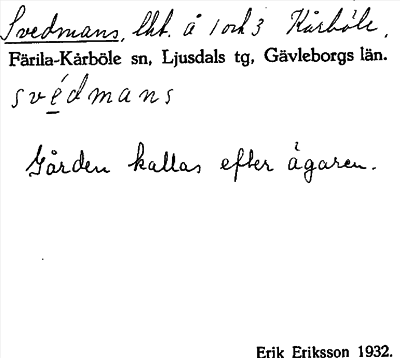 Svedmans, lht. å 1 och 3 Kårböle,
Färila-Kårböle sn, Ljusdals tg, Gävleborgs län.
svédmans
Gården kallas efter ägaren.
Erik Eriksson 1932.